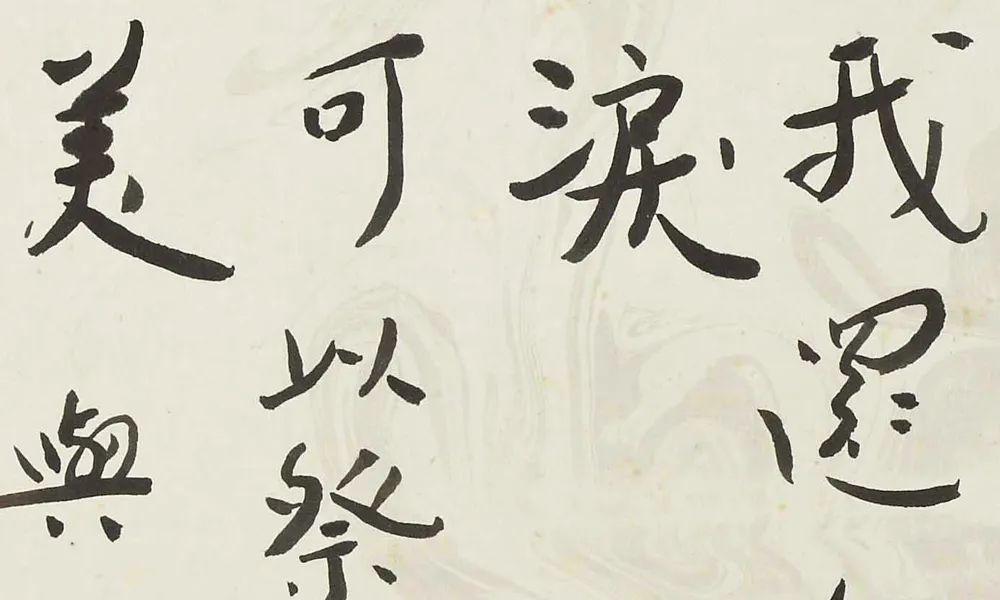 我還
淚
可以祭
美與